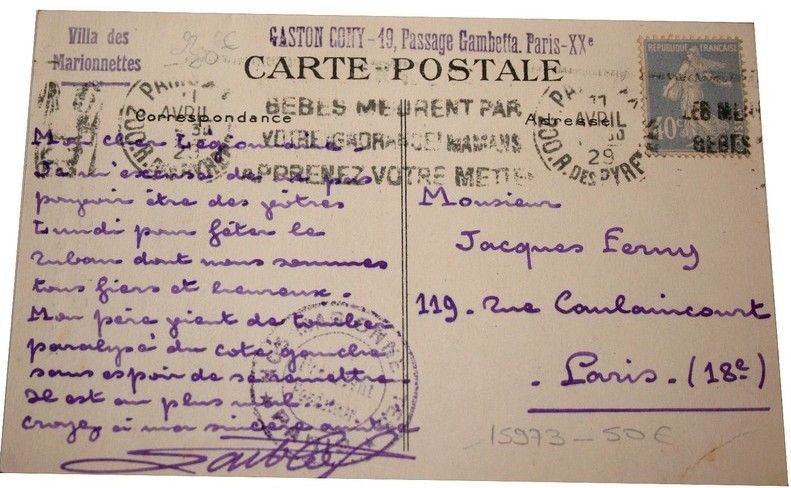 Villa des
Marionnettes
GASTON CONY - 19, Passage Gambetta. Paris-XXe
CARTE POSTALE
Correspondance
Adresse
BEBES MEURENT PAR
VOTRE IGNORANCE! MAMANS
APPRENEZ VOTRE METIER
AVRIL
29
RÉPUBLIQUE FRANÇAISE
40c
BEBES
Mon cher
Je m'excuse de ne pas
pouvoir être des vôtres
Lundi pour fêter le
ruban dont nous sommes
tous fiers et heureux.
Mon père vient de tomber
paralysé du coté gauche
sans espoir de se remettre
Il est au plus mal.
Croyez à ma sincère amitié
Monsieur
Jacques Ferny
119. Rue Caulaincourt
- Paris. (18e)
15973 - 50 €